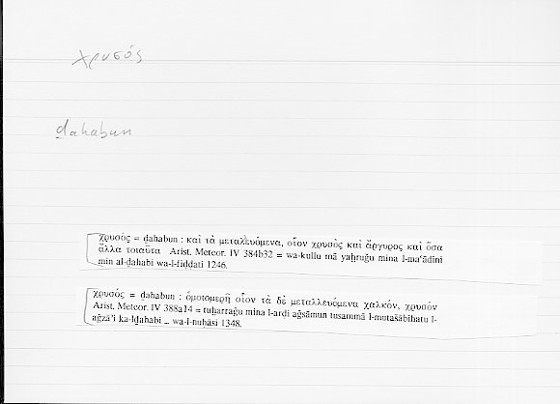 χρυσός
ḏahabun
χρυσὸς = ḏahabun : καὶ τὰ μεταλλευόμενα, οἷον χρυσὸς καὶ ἄργυρος καὶ ὅσα
ἄλλα τοιαῦτα Arist. Meteor. IV 384b32 = wa-kullu mā yaḫruǧu mina l-ma‘ādini
min al-ḏahabi wa-l-fiḍḍati 1246.
χρυσός = ḏahabun : ὁμοιομερῆ οἷον τὰ δὲ μεταλλευόμενα χαλκόν, χρυσόν
Arist. Meteor. IV 388a14 = tuḫarraǧu mina l-arḍi aǧsāmun tusammā l-mutašābihatu l-
aǧzā’i ka-lḏahabi _ wa-l-nuḥāsi 1348.